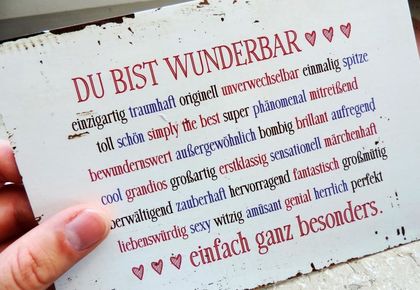 DU BIST WUNDERBAR
einzigartig traumhaft originell unverwechselbar einmalig spitze
toll schön simply the best super phänomenal mitreißend
bewundernswert außergewöhnlich bombig brillant aufregend
cool grandios großartig erstklassig sensationell märchenhaft
berwältigend zauberhaft hervorragend fantastisch großmütig
liebenswürdig sexy witzig amüsant genial herrlich perfekt
einfach ganz besonders.